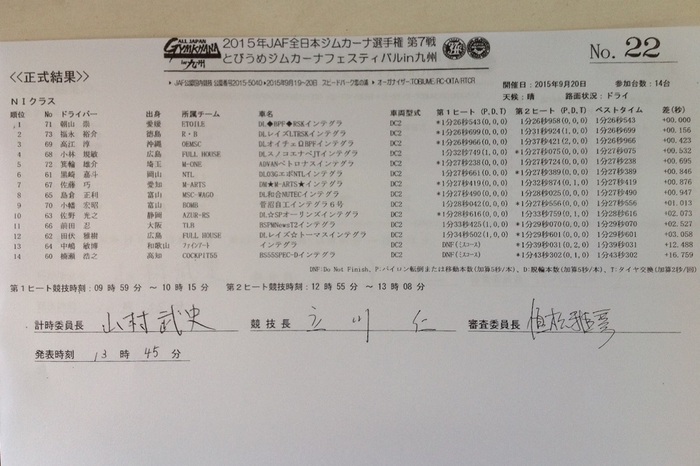 ALL JAPAN
GYMKHANA
in 九州
2015年JAF全日本ジムカーナ選手権 第7戦
とびうめジムカーナフェスティバルin九州
No. 22
<<正式結果>>
開催日：2015年9月20日 参加台数：14台
天候：晴 路面状況：ドライ
N1クラス
順位 No ドライバー 出身 所属チーム 車名 車両型式 第1ヒート(P,D,T) 第2ヒート(P,D,T) ベストタイム 差(秒)
1 71 朝山 崇 愛媛 ETOILE DL◆BPF◆RSKインテグラ DC2 *1分26秒543(0,0,0) 1分26秒958(0,0,0) 1分26秒543 +00.000
2 73 福永 裕介 徳島 R・B DLレイズLTRSKインテグラ DC2 *1分26秒699(0,0,0) 1分31秒924(1,0,0) 1分26秒699 +00.156
3 69 高江 淳 沖縄 OEMSC DLオイチェΩBPFインテグラ DC2 *1分26秒966(0,0,0) 1分37秒421(2,0,0) 1分26秒966 +00.423
4 68 小林 規敏 広島 FULL HOUSE DLスノコエナペJTインテグラ DC2 1分32秒749(1,0,0) *1分27秒075(0,0,0) 1分27秒075 +00.532
5 72 箕輪 雄介 埼玉 M-ONE ADVANペトロナスインテグラ DC2 *1分27秒238(0,0,0) 1分27秒724(0,0,0) 1分27秒238 +00.695
6 61 黒崎 嘉斗 岡山 NTL DL03GエボNTLインテグラ DC2 1分27秒661(0,0,0) *1分27秒389(0,0,0) 1分27秒389 +00.846
7 67 佐藤 巧 愛知 M-ARTS DM★M-ARTS★インテグラ DC2 *1分27秒419(0,0,0) 1分32秒874(1,0,0) 1分27秒419 +00.876
8 65 島倉 正利 富山 MSC-WAGO DL和合NUTECインテグラ DC2 *1分27秒490(0,0,0) 1分28秒025(0,0,0) 1分27秒490 +00.947
9 70 小幡 宏昭 富山 BOMB 菅沼自工インテグラ6号 DC2 1分28秒042(0,0,0) *1分27秒556(0,0,0) 1分27秒556 +01.013
10 63 佐野 光之 静岡 AZUR-RS DL☆SPオーリンズインテグラ DC2 *1分28秒616(0,0,0) 1分33秒759(0,1,0) 1分28秒616 +02.073
11 66 前田 忍 大阪 TLR DC2 1分33秒425(1,0,0) *1分29秒255(0,0,0)
12 62 田伏 雅樹 広島 FULL HOUSE DLレイズ☆トーマスインテグラ DC2 1分34秒502(1,0,0) *1分29秒601(0,0,0) 1分29秒601 +03.058
13 64 中嶋 敏博 和歌山 インテグラ DC2 DNF(ミスコース) *1分39秒031(0,2,0) 1分39秒031 +12.488
14 60 楠瀬 浩之 高知 COCKPIT55 BS55SPEC-Dインテグラ DC2 DNF(ミスコース) *1分43秒302(0,1,0) 1分43秒302 +16.759
DNF:Do Not Finish、P:パイロン転倒または移動本数(加算5秒/本)、D:脱輪本数(加算5秒/本)、T:タイヤ交換(加算2秒/回)
第1ヒート競技時刻：09時59分 ～ 10時15分 第2ヒート競技時刻：12時55分 ～ 13時08分
計時委員長 山村 武史 競技長 立川 仁 審査委員長
発表時刻 13時 45分